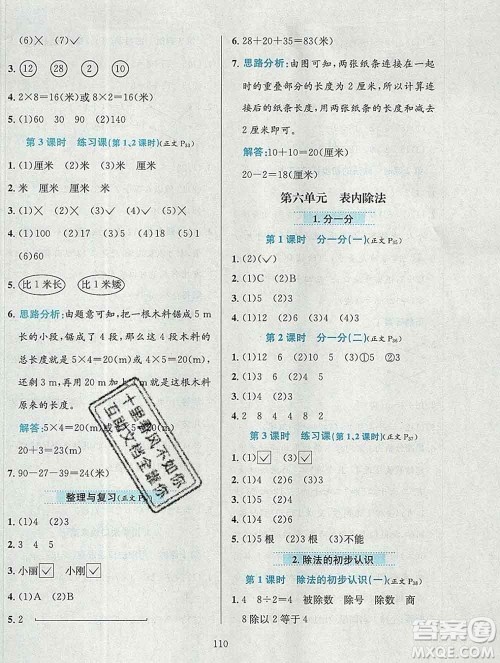 (6)× (7)✓
3. ⑫ ㉘ ② ⑩
4. 2×8=16(米)或8×2=16(米)
5. (1)30 90 140
第3课时 练习课(第1、2课时)(正文P53)
1. (1)厘米 (2)米 (3)厘米
2. 米 厘米 厘米 米
3. (1)✓ (2)× (3)✓ (4)×
4. (1)100 (2)5 (3)137 (4)29 (5)18
(6)90
5. 比1米长 比1米矮
6. 思路分析:由题意可知,把一根木料锯成5m
长的小段,锯成了4段,那么这4段木料的
总长度就是5×4=20(m)或4×5=20(m),
还剩3m,再用20m加上3m就是这根木料
原来的长度。
解答:5×4=20(m)或4×5=20(m)
20+3=23(m)
7. 90-27-39=24(米)
整理与复习(正文P
1. (1)4 (2)3
2. (1)✓ (2)✓ (3)×
3. 小丽☑ 小刚☑
4. (1)A (2)B
5. 2
6. (1)× (2)✓
7. 28+20+35=83(米)
7. 思路分析:由图可知,两张纸条连接在一起
时的重叠部分的长度是2厘米,所以计算连
接后的纸条的长度,用两张纸条的长度减去
2厘米即可。
解答:10+10=20(厘米)
20-2=18(厘米)
第六单元 表内除法
1. 分一分
第1课时 分一分(一)(正文P55)
1. (2)(✓)
2. (1)C (2)B
3. (1)5 (2)3
4. (1)12 (2)6 (3)4
第2课时 分一分(二)(正文P56)
1. (1)4 (2)3
2. (1)4 (2)3
3. (1)5 (2)3
4. 2 8 4 8 2 4
第3课时 练习课(第1、2课时)(正文P57)
1. (1)☑ (3)☑
2. (1)5 (2)3 (3)5
3. (1)6 (2)9
4. (1)3 (2)9
5. (1)5根 (2)3根 (3)不能
2. 除法的初步认识
第1课时 除法的初步认识(一)(正文P58)
1. 4 8÷2=4 被除数 除号 除数 商
8除以2等于4
110
十里春风不如你
互助文档全靠你
答案圈
MXQE.COM